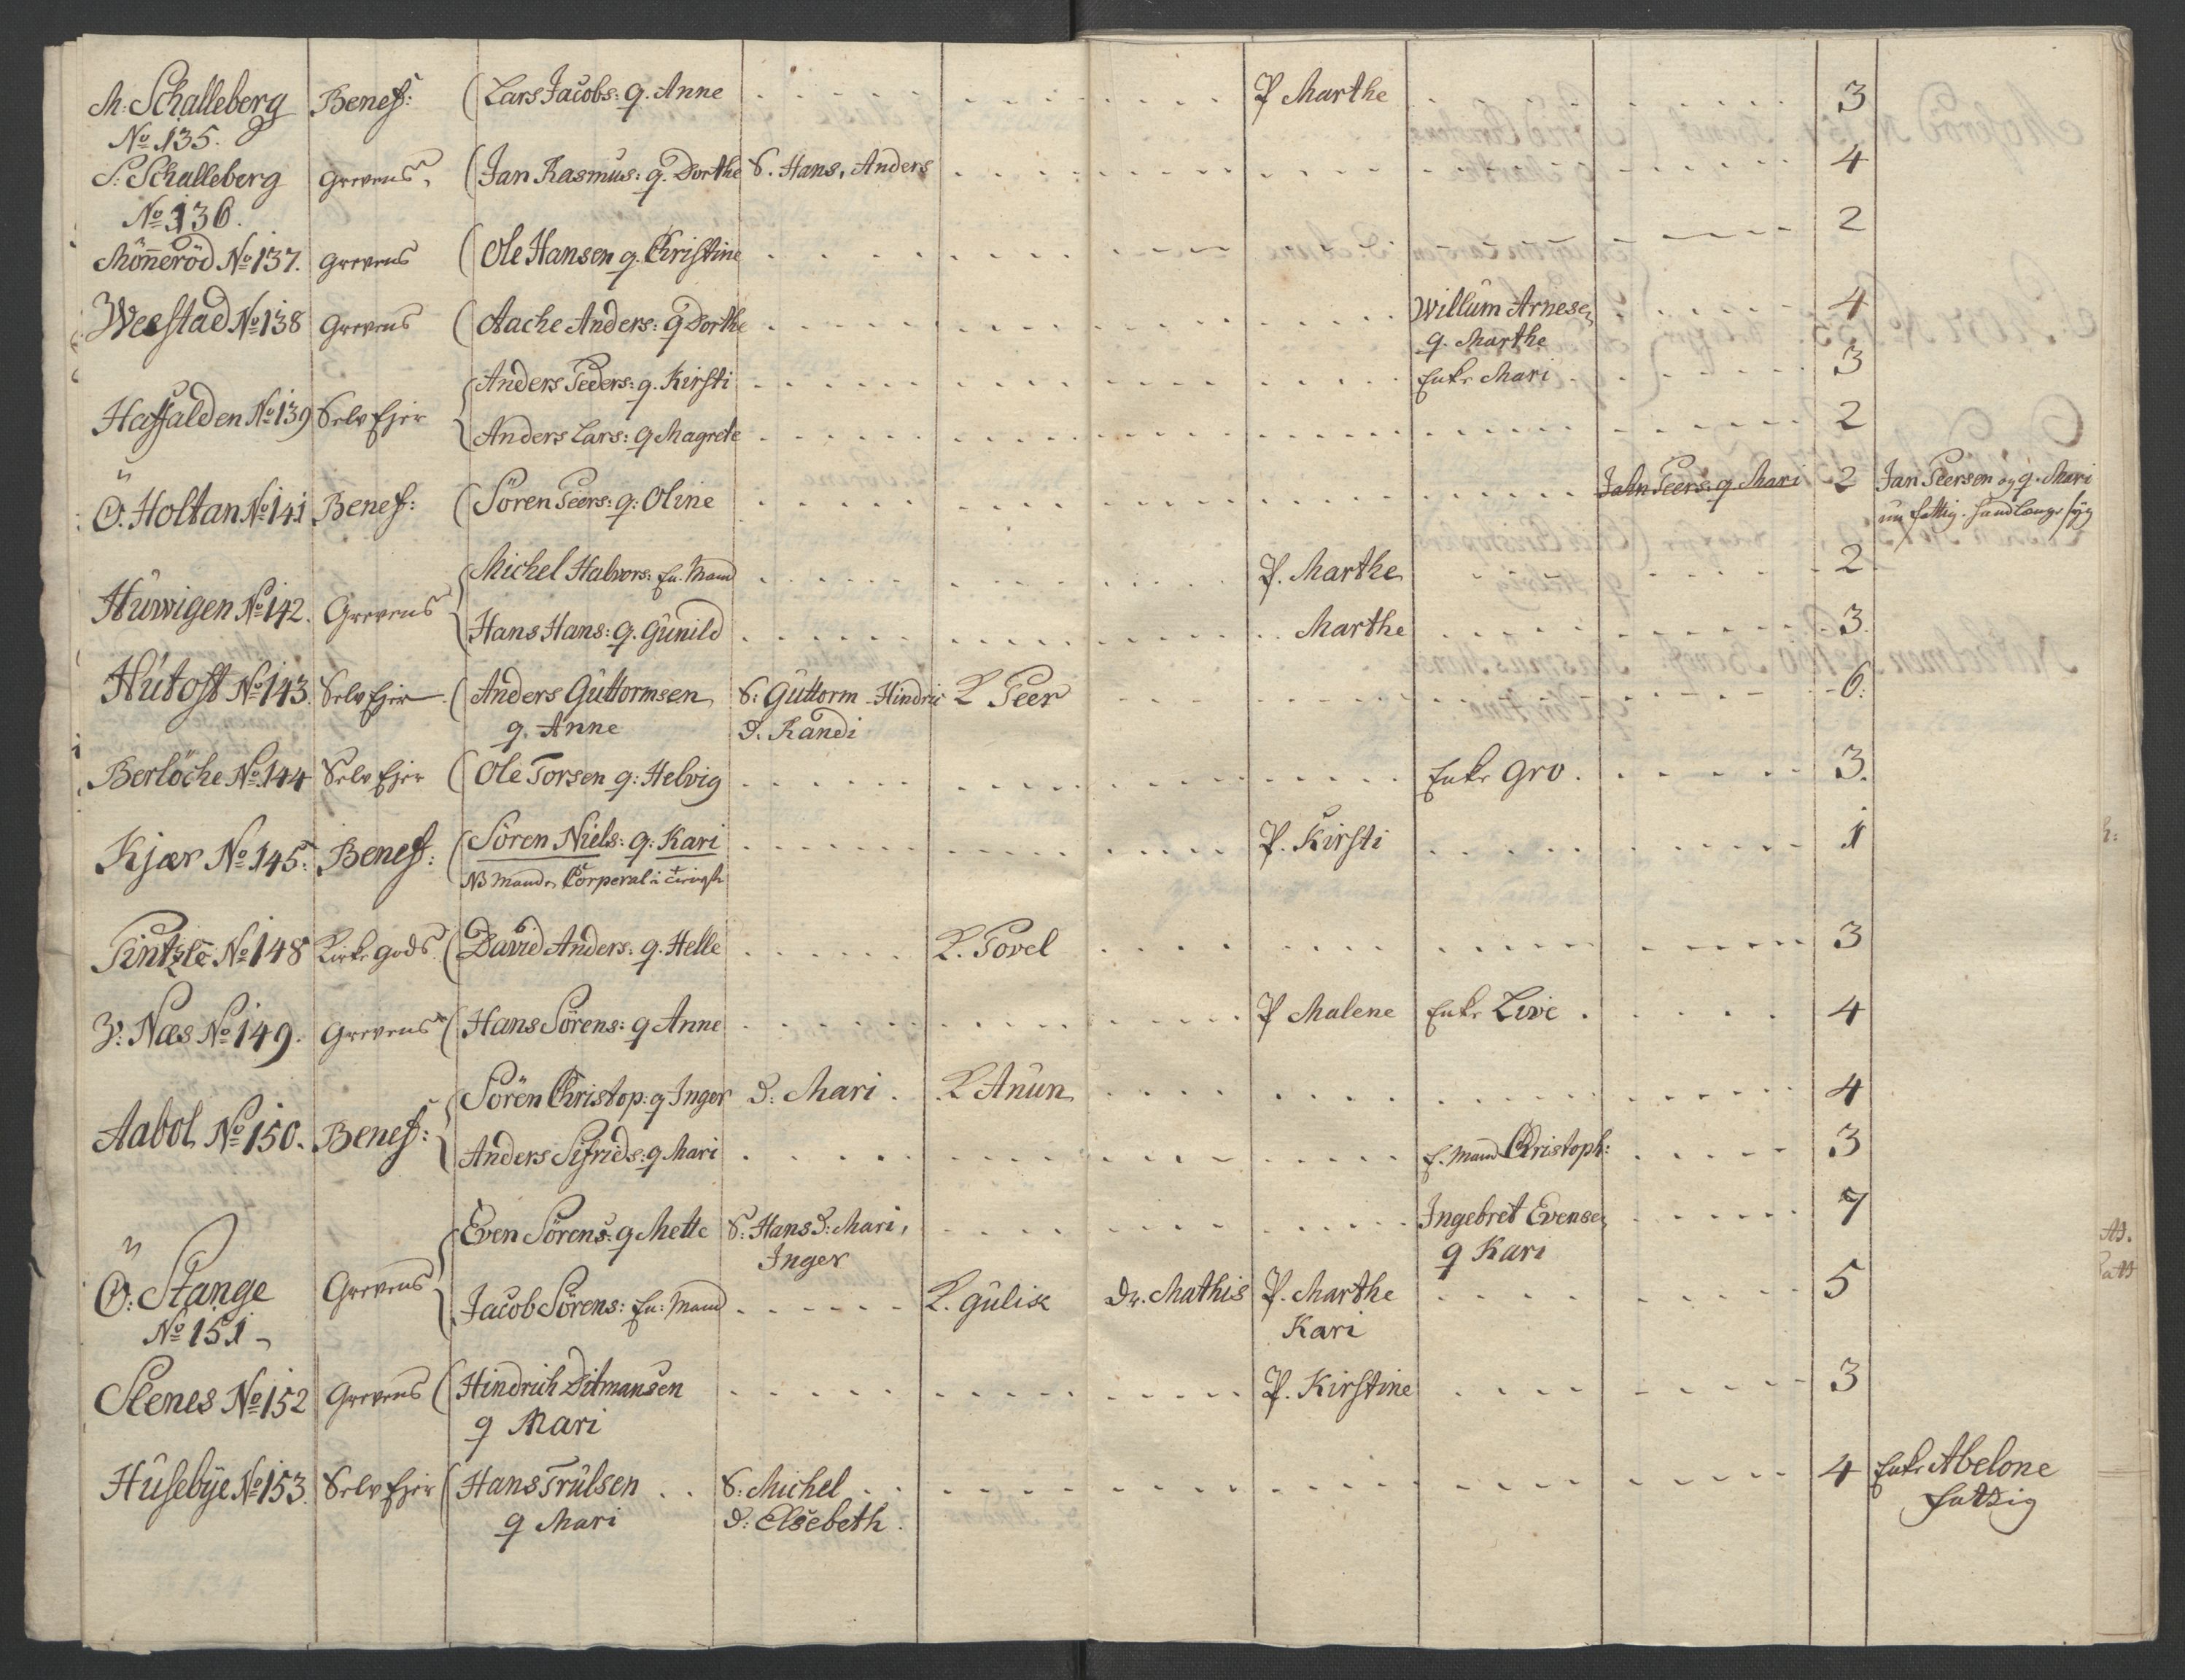 M: Schalleberg Benef: ( Lars Jacobs: q. Anne P Marthe 3
No 135.
S: Schalleberg Grevens ( Jan Rasmus: q. Dorthe S. Hans, Anders 4
No 136.
Mönneröd No 137. Grevens ( Ole Hansen q. Christine 2
Weestad No 138 Grevens ( Aache Anders: q Dorthe Willum Arnesen 4
q. Marthe
Anders Peders: q. Kirsti Enke Mari 3
Hassalden No 139 Selv Ejer
Anders Lars: q Magrete 2
Ö. Holtan No 141 Benef: ( Sören Peers: q: Oline Jahn Peers: q Mari 2 Jan Peersen og q. Mari
fattig
Michel Halvors: En. Mand P. Marthe 2
Huwigen No 142. Grevens
Hans Hans: q. Gunild Marthe 3.
Hutoft No 143. Selv Ejer ( Anders Guttormsen S: Guttorm Hindric L Peer 6.
q. Anne D. Randi
Berlöche No 144 Selv Ejer ( Ole Torsen q: Helvig Enke Gro. 3.
Kjær No 145. Benef: ( Sören Niels: q: Kari P. Kirsti 1
NB Manden Corperal
Pintzle No 148 Kirke Gods. ( David Anders: q. Helle L. Povel 3
Y: Næs No 149. Grevens ( Hans Sörens: q Anne P Malene Enke Live 4
Sören Christop: q Inger D: Mari. L Anun 4
Aabol No 150. Benef:
Anders Sifrids: q Mari E. Mand Christoph: 3
Even Sörens: q Mette S: Hans D: Mari, Ingebret Evensen 7
Inger q Kari
Ö: Stange Grevens
Jacob Sörens: En: Mand L. Gulik Dr. Mathis P. Marthe 5
No 151 Kari
Stenes No 152 Grevens ( Hindrich Ditmansen P. Kirstine 3
q Mari
Husebye No 153. Selv Ejer ( Hans Trulsen S: Michel 4 Enke Abelone
q Mari D: Elsebeth. fattig